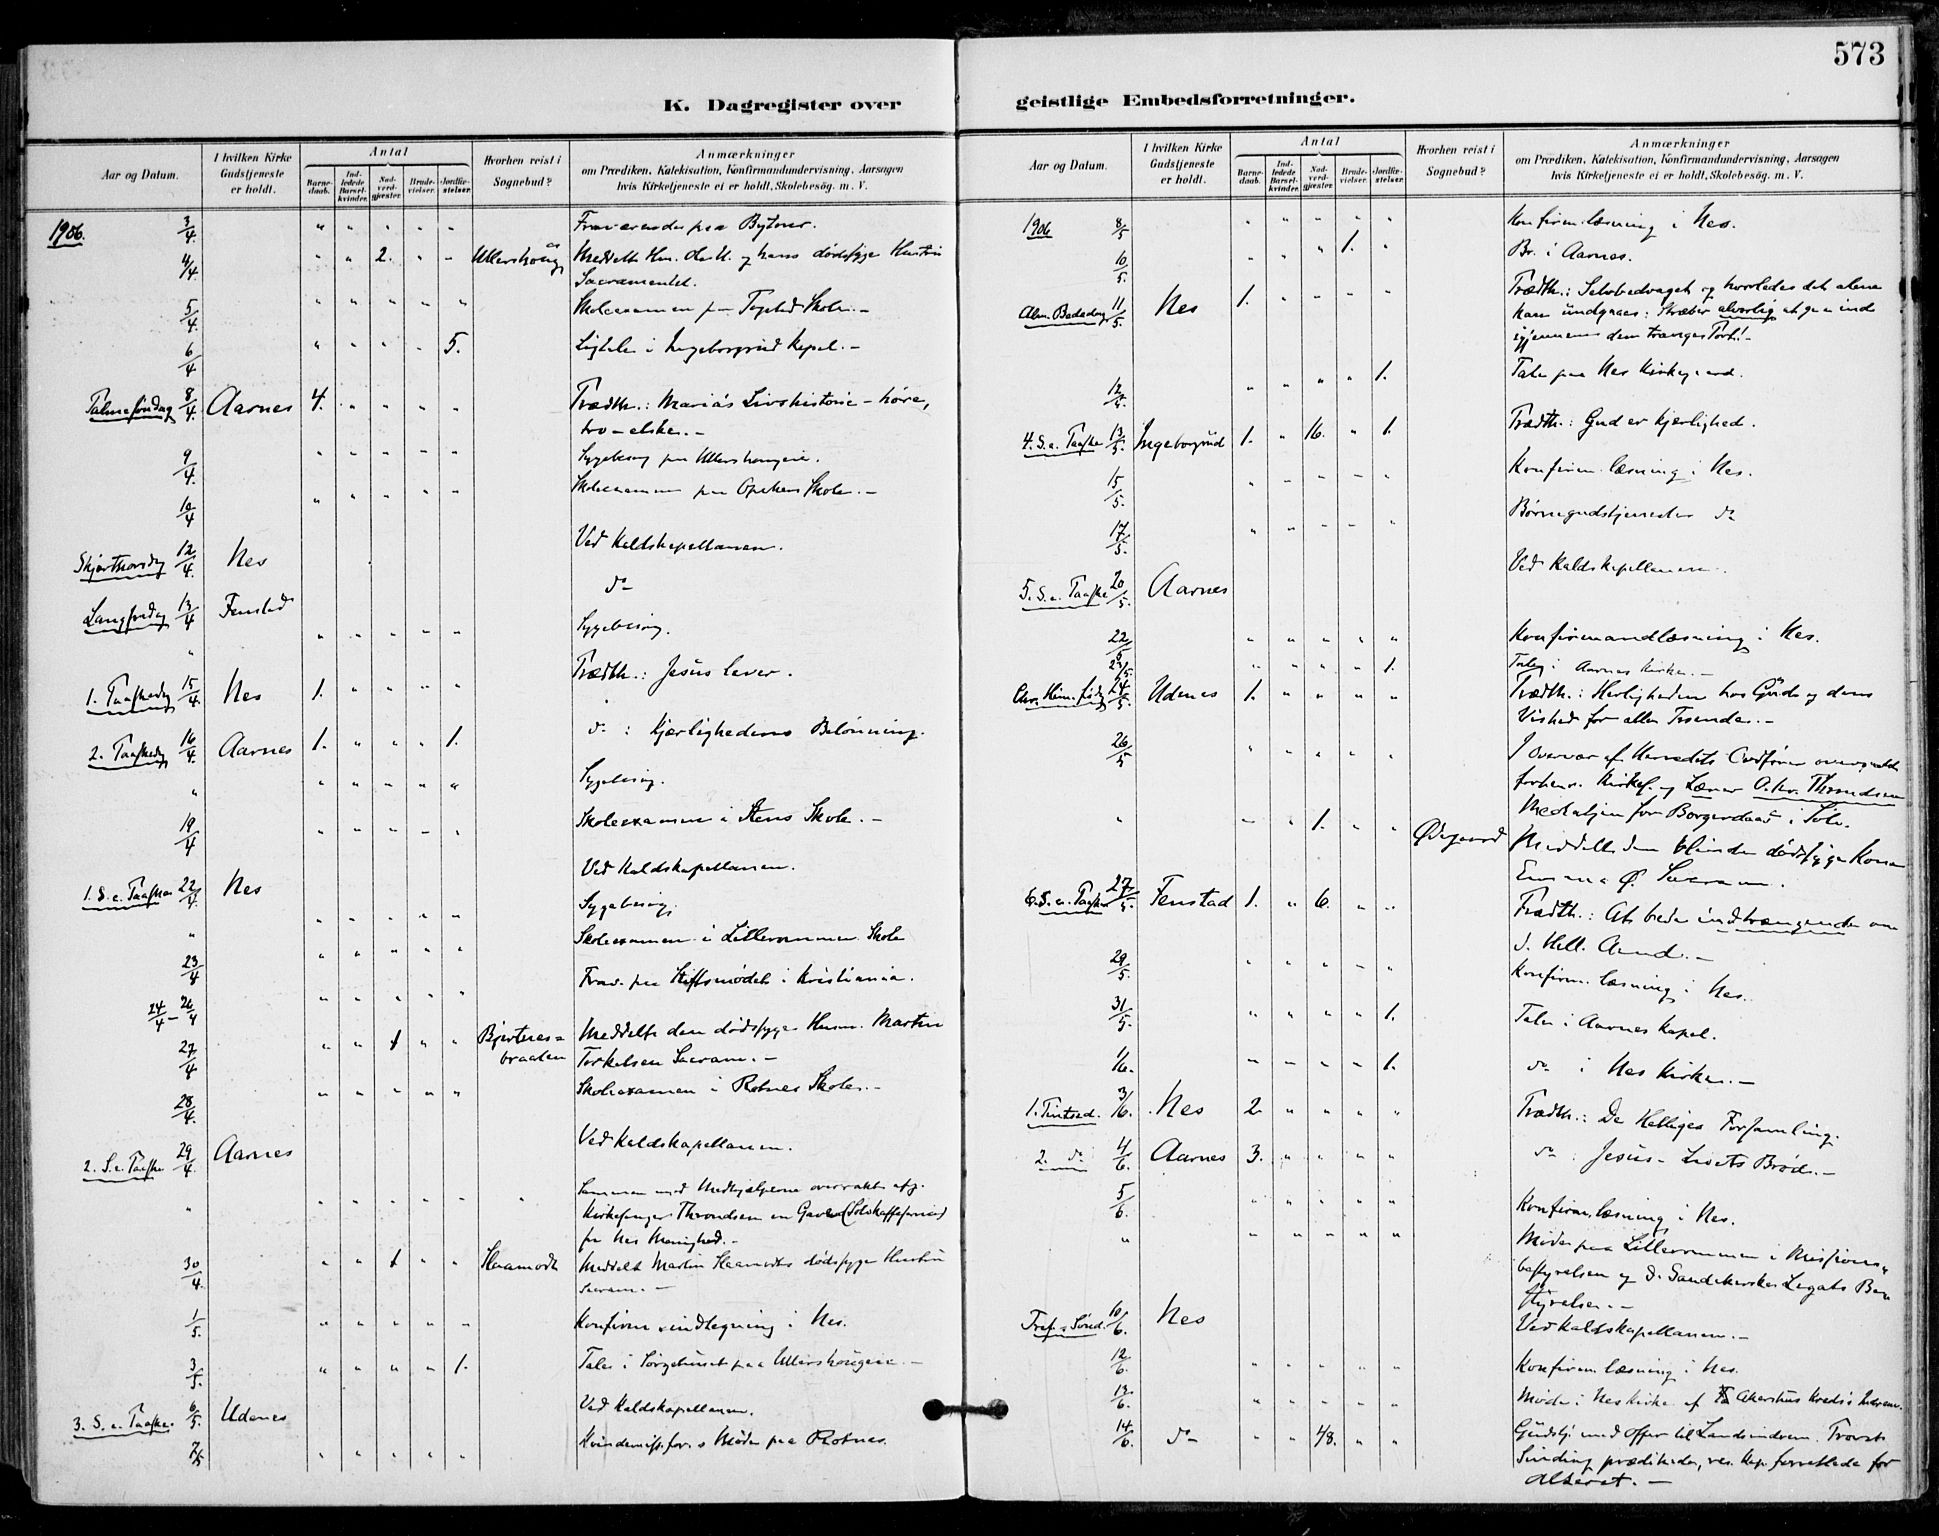 573
K. Dagregister over geistlige Embedsforretninger.
Aar og Datum.
I hvilken Kirke Gudstjeneste er holdt.
Antal
Barnedaab.
Indledede Barselkvinder.
Nadverdgjæster.
Brudevielser.
Jordfæstelser.
Hvorhen reist i Sognebud?
Anmærkninger
om Prædiken, Katekisation, Konfirmandundervisning, Aarsagen
hvis Kirketjeneste ei er holdt, Skolebesøg. m. V.
1906. 3/4 " " " " "
4/4 " " 2. " " Meddelt Hm. og hans dødssyge Hustru
Sacramentet.
5/4 " " " " " Skoleexamen paa Skole. -
6/4 " " " " 5. Ligtale i Ingeborgrud Kapel. -
Palmesøndag 8/4 Aarnes 4. " " " " Prædth.: Marias Livshistorie - høre,
tro - elske. -
9/4 " " " " " Sygebesøg paa
10/4 " " " " " Skoleexamen paa Opaker Skole. -
Skjærthorsdag 12/4 Nes Ved Kaldskapellanen.
Langfredag 13/4 Fenstad do
" " " " " " Sygebesøg.
1. Paaskedag 15/4 Nes 1. " " " " Prædth.: Jesus lever.
2. Paaskedag 16/4 Aarnes 1. " " " 1. do : Kjærlighedens Belønning.
" " " " " " Sygebesøg.
19/4 " " " " " Skoleexamen i Stens Skole. -
1. S. e. Paaske 22/4 Nes Ved Kaldskapellanen.
" " " " " " Sygebesøg.
23/4 " " " " " Skoleexamen i Skole
24/4 - 26/4 " " " " " Frav. paa Stiftsmødet i Kristiania.
27/4 " " 1 " " Bjertnes=
braaten Meddelte den dødssyge Husm. Martin
Torkelsen Sacram. -
28/4 " " " " " Skoleexamen i Rotnes Skole. -
2. S. e. Paaske 29/4 Aarnes Ved Kaldskapellanen.
" " " " " " " Sammen med Medhjælperne overrakt afg.
Kirkesanger Throndsen en Gave (Sølvkaffeservice)
fra Nes Menighed. -
30/4 " " 1 " " Haamodt Meddelt Martin Haamodts dødssyge Hustru
Sacram. -
1/5 " " " " " i Nes.
3/5 " " " " 1. Tale i Sørgehuset paa -
3. S. e. Paaske 6/5 Udenes Ved Kaldskapellanen.
7/5 " " " " " Kvindemissfor.s Møde paa Rotnes.
Aar og Datum.
I hvilken Kirke Gudstjeneste er holdt.
Antal
Barnedaab.
Indledede Barselkvinder.
Nadverdgjæster.
Brudevielser.
Jordfæstelser.
Hvorhen reist i Sognebud?
Anmærkninger
om Prædiken, Katekisation, Konfirmandundervisning, Aarsagen
hvis Kirketjeneste ei er holdt, Skolebesøg. m. V.
1906 8/5 " " " " " Konfirm. læsning i Nes.
10/5 " " " 1. " Br. i Aarnes.
Alm. Bededag 11/5 Nes 1. " " " " Prædth.: Selvbedraget og hvorledes det alene
kan undgaaes: Stræber alvorlig at gaa ind
igjennem den trange Port! -
12/5 " " " " 1. Tale paa Nes Kirkegaard.
4. S. e. Paaske 13/5 Ingeborgrud 1. " 16. " 1. Prædth.: Gud er kjærlighed.
15/5 " " " " " Konfirm. læsning i Nes.
17/5 " " " " " Børnegudstjeneste do
5. S. e. Paaske 20/5 Aarnes Ved Kaldskapellanen.
22/5 " " " " " Konfirmandlæsning i Nes.
23/5 " " " " 1. Tale i Aarnes Kirke. -
Chr. Him. f. dg 24/5 Udenes 1. " " " " Prædth.: Herligheden hos Gud og dens
Vished for alle Troende. -
26/5 " " " " " I Overvær af Herredets Ordfører overrakt
forhenv. Kirkes. og Lærer O. Chr. Throndsen
Medaljen for Borgerdaad i Sølv.
" " " 1. " " Ødegaard Meddelt den blinde dødssyge Kone
Emma Ø. Sacram.
6. S. e. Paaske 27/5 Fenstad 1. " 6. " " Prædth.: At bede indtrængende om
d. Hell. Aand. -
29/5 " " " " " Konfirm. læsning i Nes.
31/5 " " " " 1. Tale i Aarnes Kapel.
1/6. " " " " 1. do i Nes Kirke. -
1. Pintsed. 3/6. Nes 2. " " " " Prædth.: De Helliges Forsamling.
2. do 4/6. Aarnes 3. " " " " do : Jesus - Livets Brød. -
5/6. " " " " " Konfirm. læsning i Nes.
" " " " " " Møde paa i Missions=
bestyrelsen og d. Legats Be=
styrelse. -
Tref. Sønd. 10/6. Nes Ved Kaldskapellanen. -
12/6. " " " " " Konfirm. læsning i Nes.
13/6. " " " " " Møde i Nes Kirke af Akershus Kreds
14/6. do " " 48. " " Gudstj. med Offer til Landsindrem. Provst
Sinding prædikede, res. Kap. forrettede for
Alteret. -